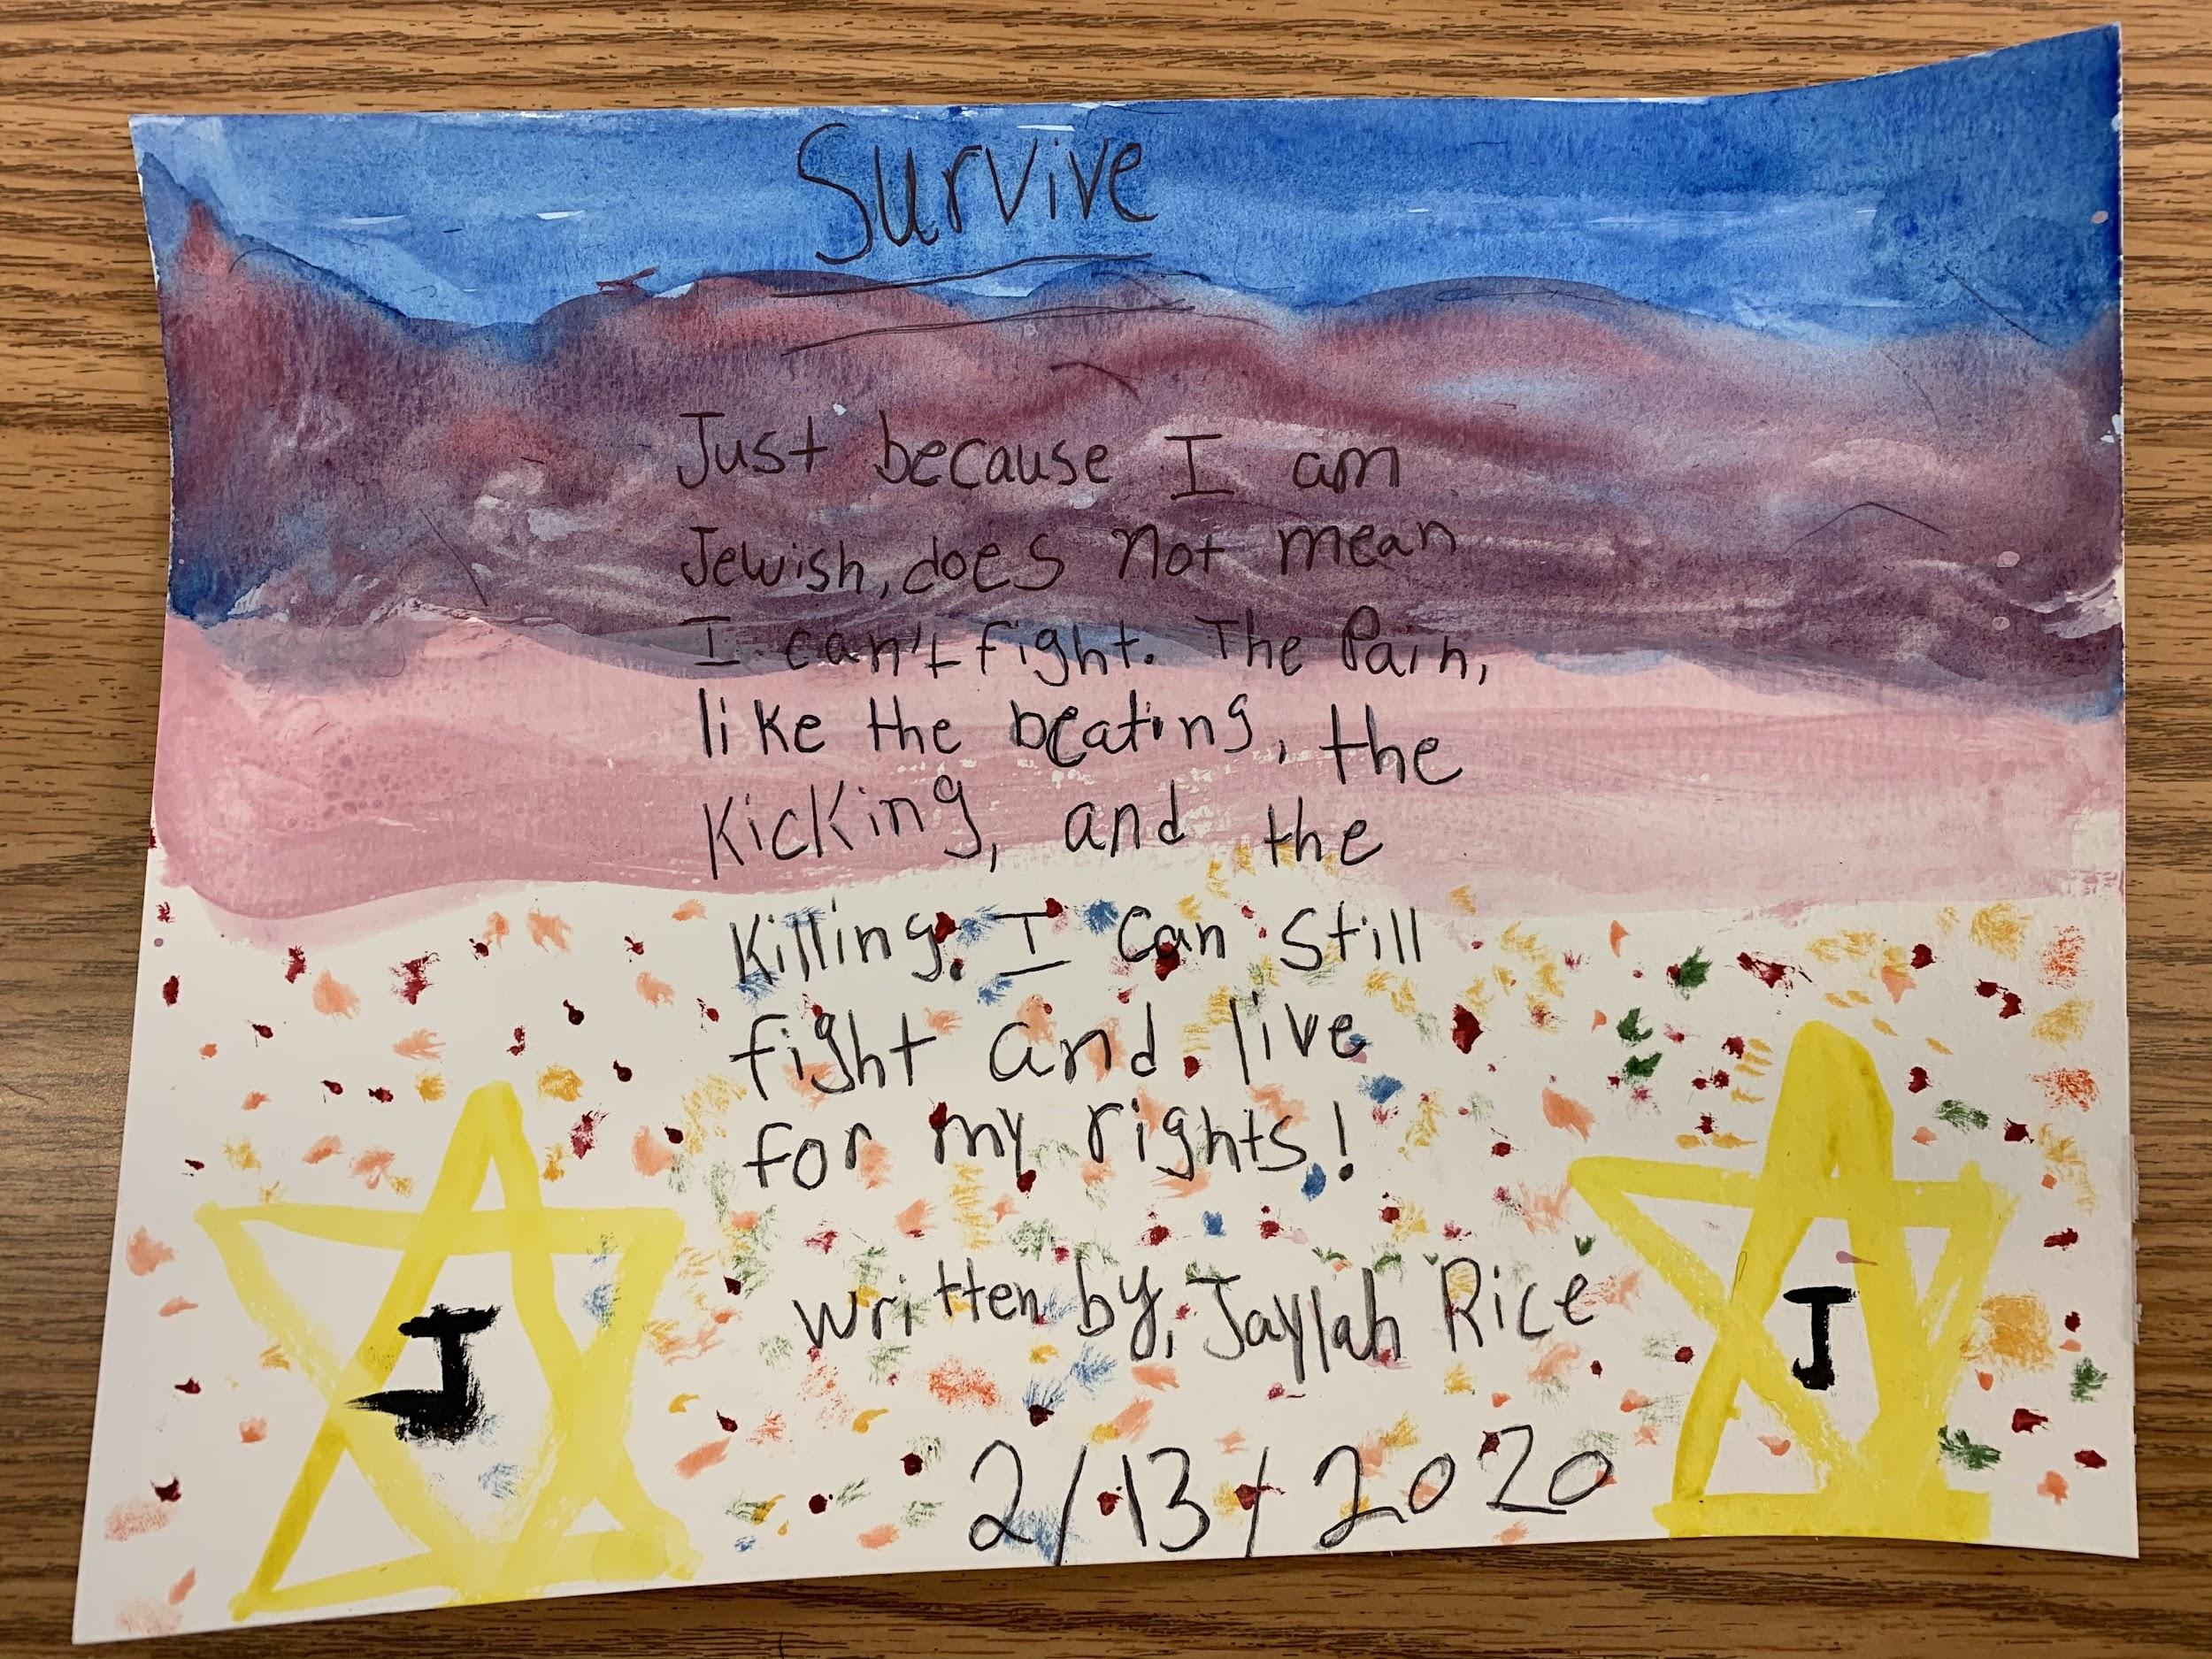 Survive
Just because I am
Jewish, does not mean
I can't fight. The Pain,
like the beating, the
Kicking, and the
Killing. I can still
fight and live
for my rights!
written by, Jaylah Rice
2/13/2020
J
J